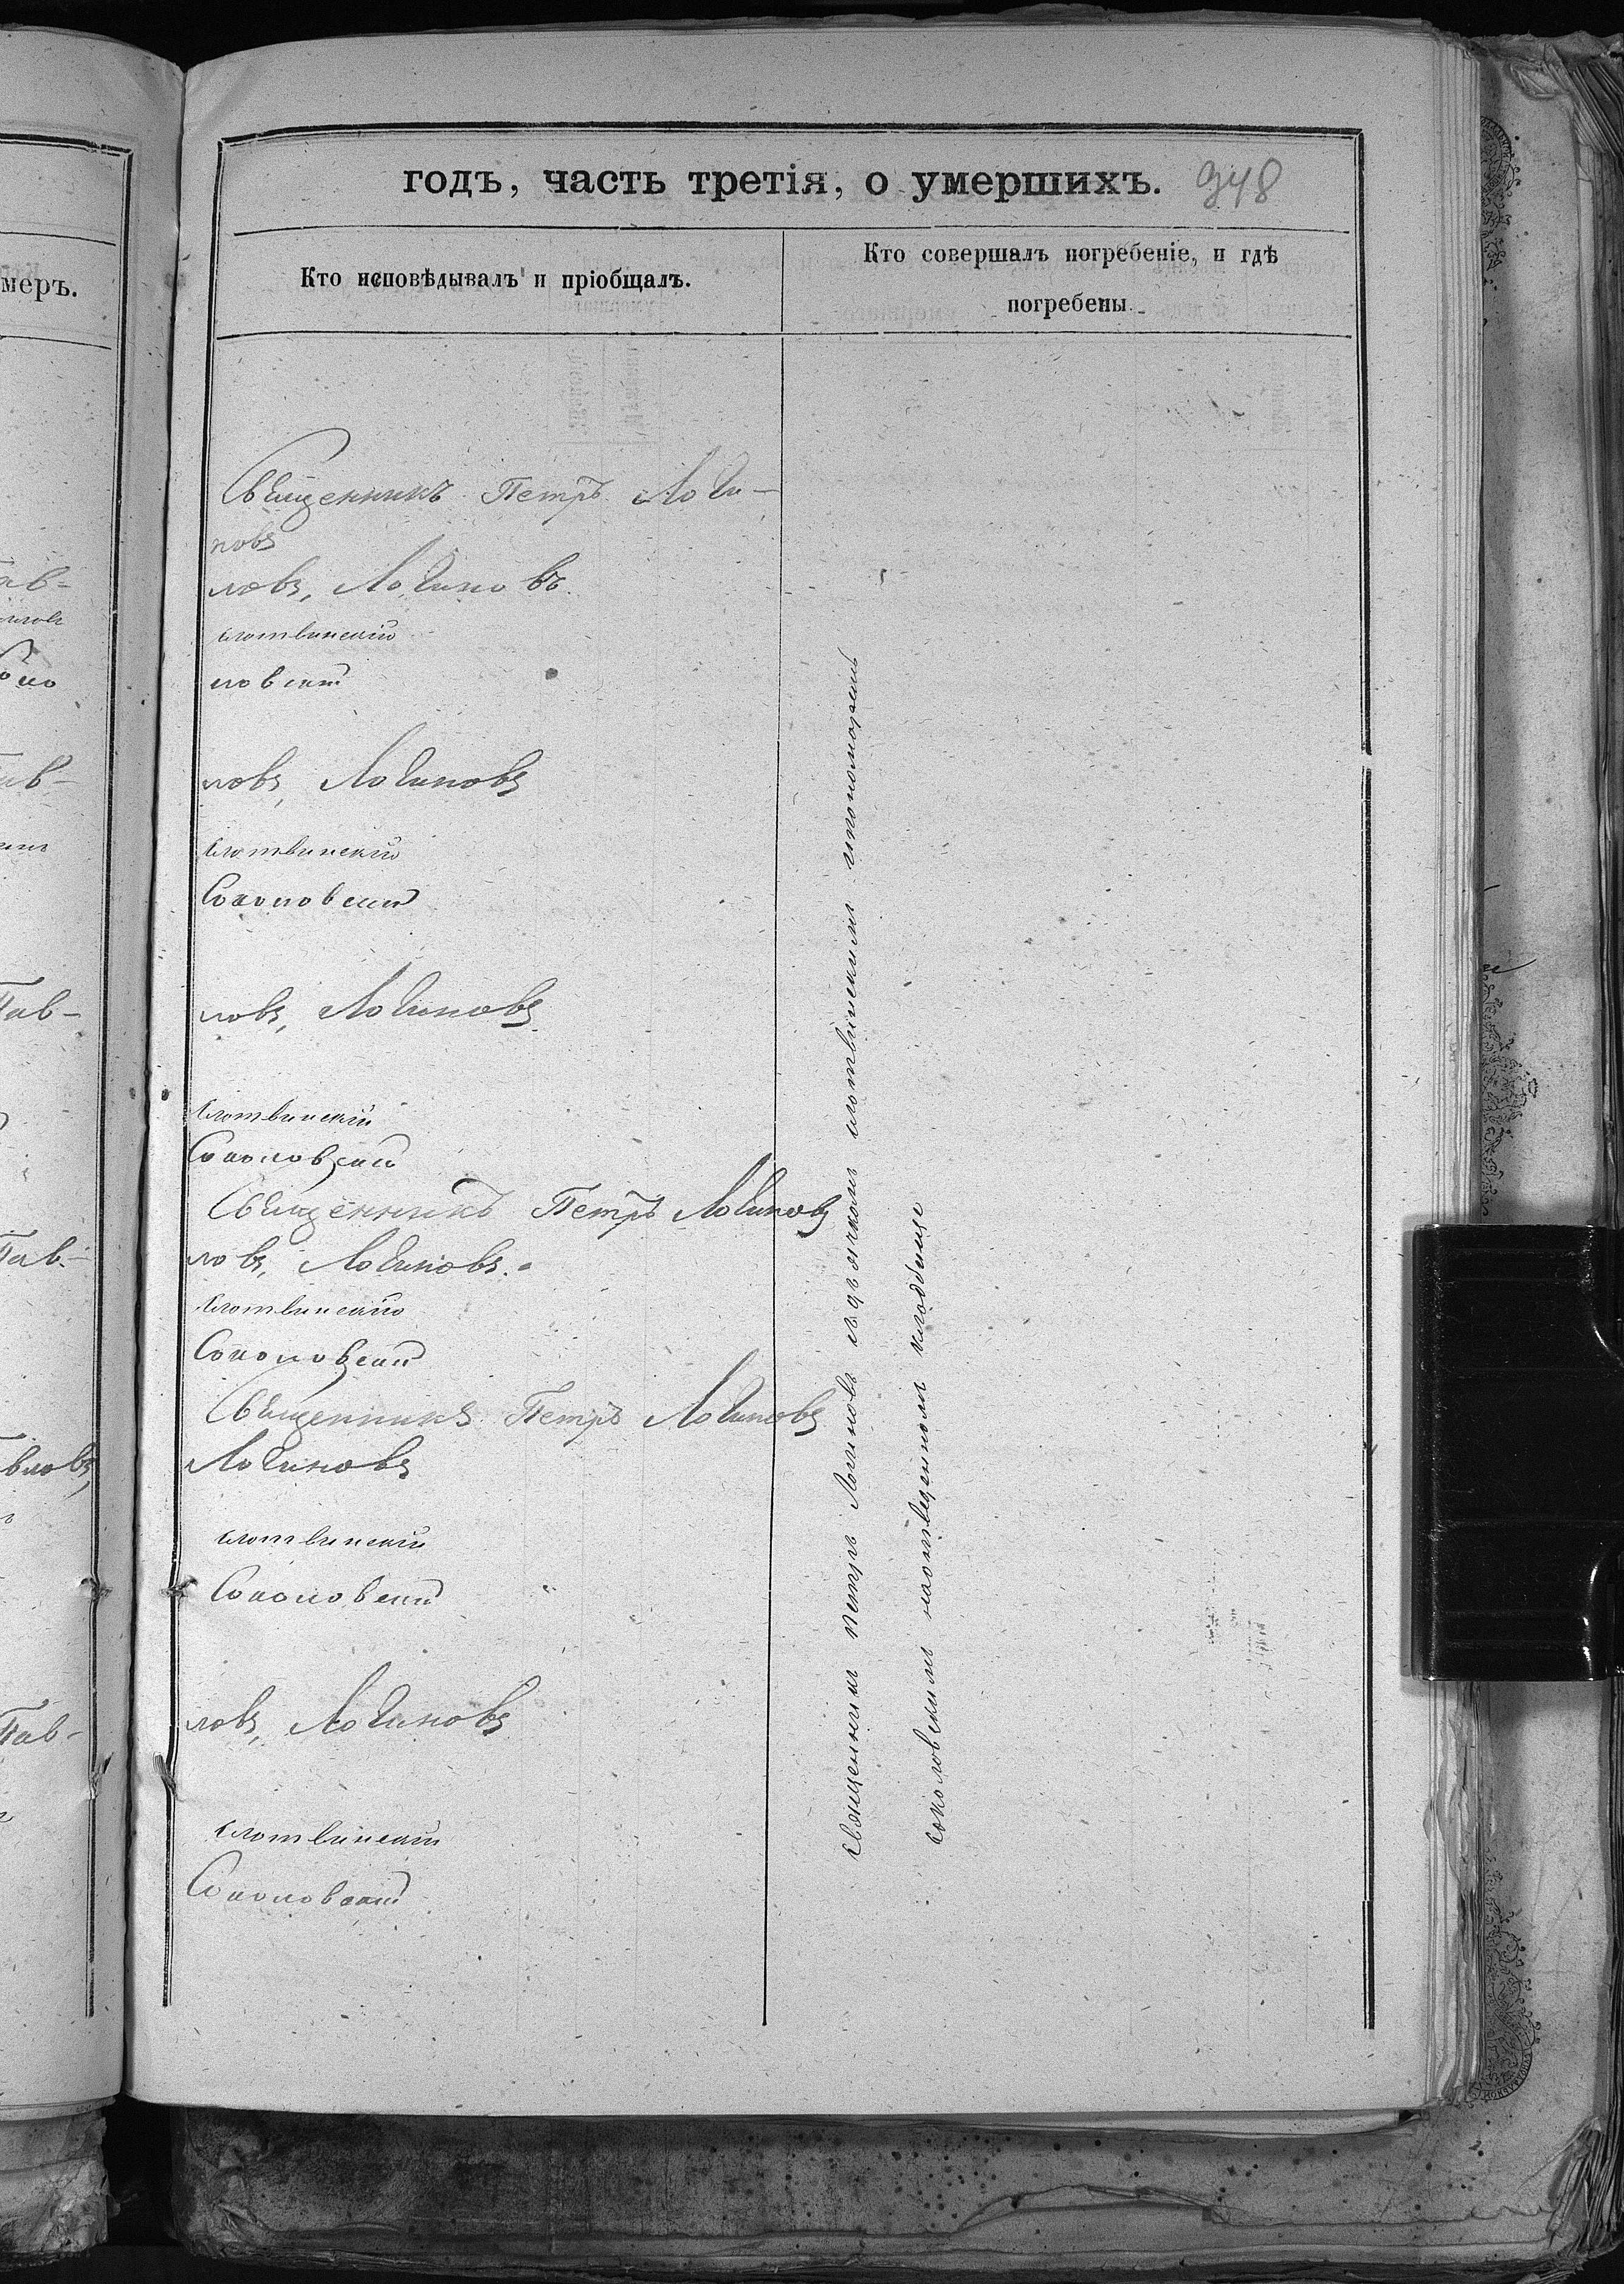 годъ, часть третія, о умершихъ. 948
меръ.
Кто исповѣдывалъ и пріобщалъ.
Кто совершалъ погребеніе, и гдѣ
погребены
Священникъ Петръ Логи-
новъ
ловъ, Логиновъ.
Клотвинскій
ловскій
ловъ, Логиновъ
Клотвинскій
Соколовскій
ловъ, Логиновъ
Клотвинскій
Соколовскій
Священникъ Петръ Логиновъ
ловъ, Логиновъ.
Клотвинскій
Соколовскій
Священникъ Петръ Логиновъ
Логиновъ
Клотвинскій
Соколовскій
ловъ, Логиновъ
Клотвинскій
Соколовскій
Пав-
Пав-
Пав-
Пав-
вловъ,
Пав-
священникъ петръ Логиновъ съ дьячкомъ клотвинскимъ ипономоремъ
соколовскимъ наотведенномъ кладбище